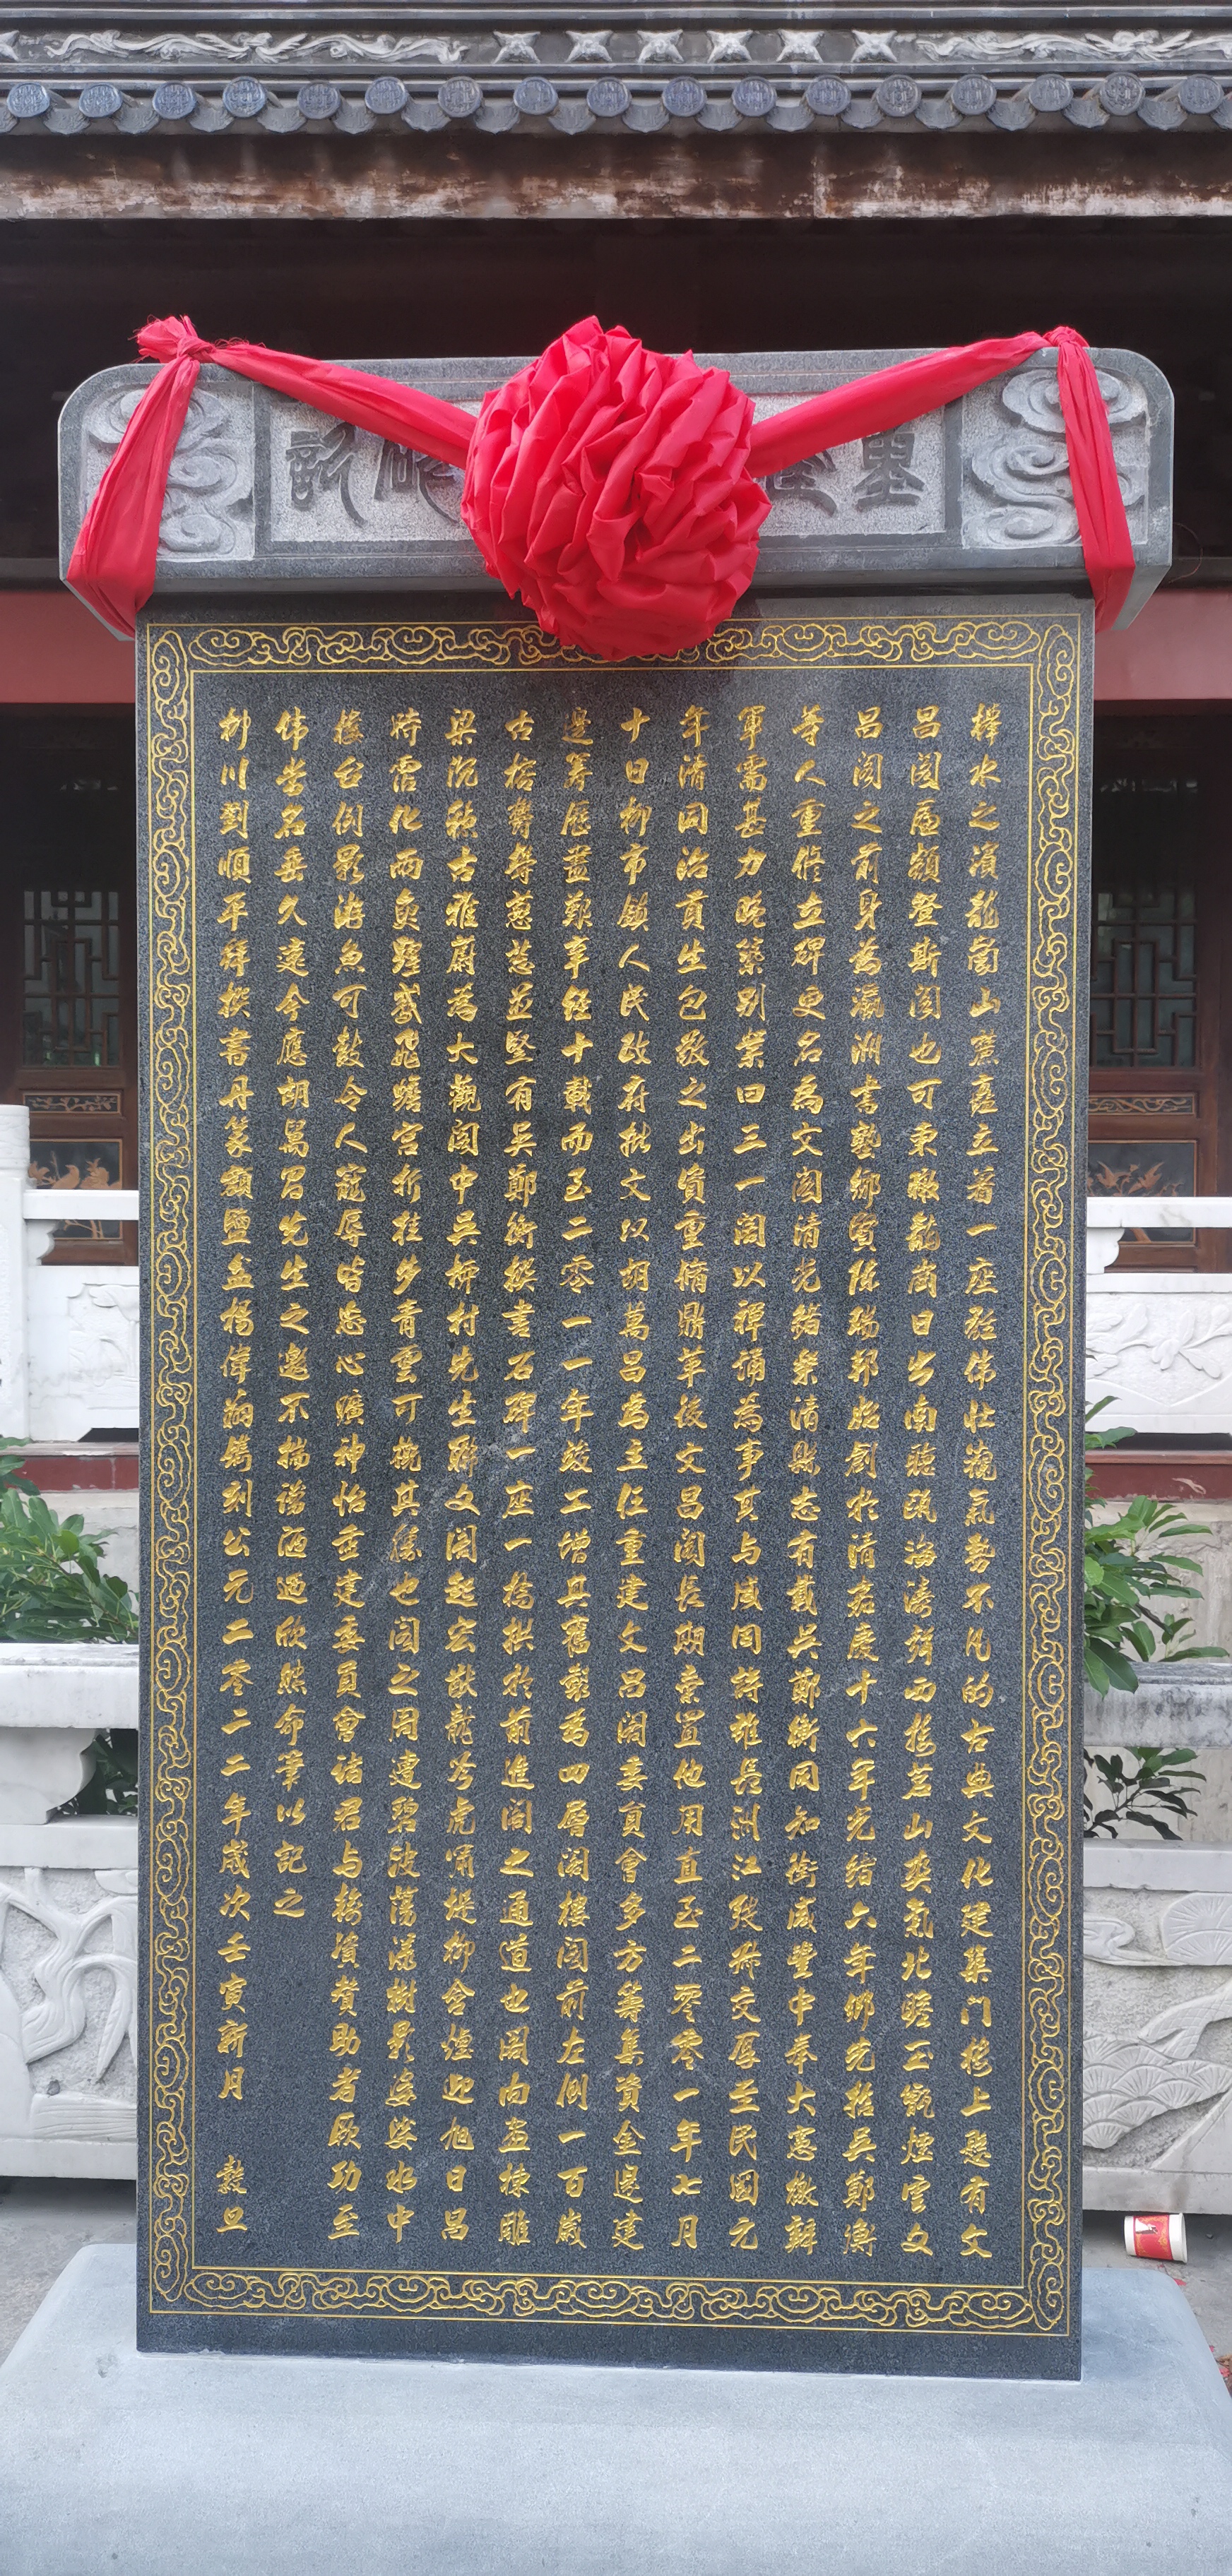 重 碑記
樺水之濱龍崗山麓矗立着一座雄偉壯觀氣勢不凡的古典文化建築門樓上懸有文
昌閣匾額登斯閣也可東瞰龍崗日出南聽甌海濤聲西接茗山爽氣北瞻玉甑煙雲文
昌閣之前身為瀛洲書塾鄉賓陳瑞邦始創於清嘉慶十六年光緒六年鄉先哲吳鄭衡
等人重修立碑更名為文閣清光緒樂清縣志有載吳鄭衡同知銜咸豐中奉大憲檄辦
軍需甚力晚築別業曰三一閣以禪誦為事其與咸同詩雄長洲江弢叔交厚至民國元
年清同治貢生包敬之出資重脩鼎革後文昌閣長期棄置他用直至二零零一年七月
十日柳市鎮人民政府批文以胡萬昌為主任重建文昌閣委員會多方籌集資金遷建
是籌歷盡艱辛經十載而至二零一一年竣工增其舊制為四層閣樓閣前左側一百歲
古榕 並豎有吳鄭衡撰書石碑一座一橋拱於前進閣之通道也閣內畫棟雕
梁沉穩古雅蔚為大觀閣中吳 村先生聯文閣起宏猷龍吟虎嘯堤柳含煙迎旭日昌
時霑化雨 蟾宮折桂步青雲可概其勝也閣之周遭碧波蕩漾樹影婆娑水中
樓台倒影游魚可數令人寵辱皆忘心曠神怡重建委員會諸君与務資贊助者厥功至
偉芳名垂久遠今應胡萬昌先生之邀不揣譾陋迺欣然命筆以記之
柳川劉順平拜撰書丹篆額鹽盆楊偉 鐫刻公元二零二二年歲次壬寅新月 穀旦